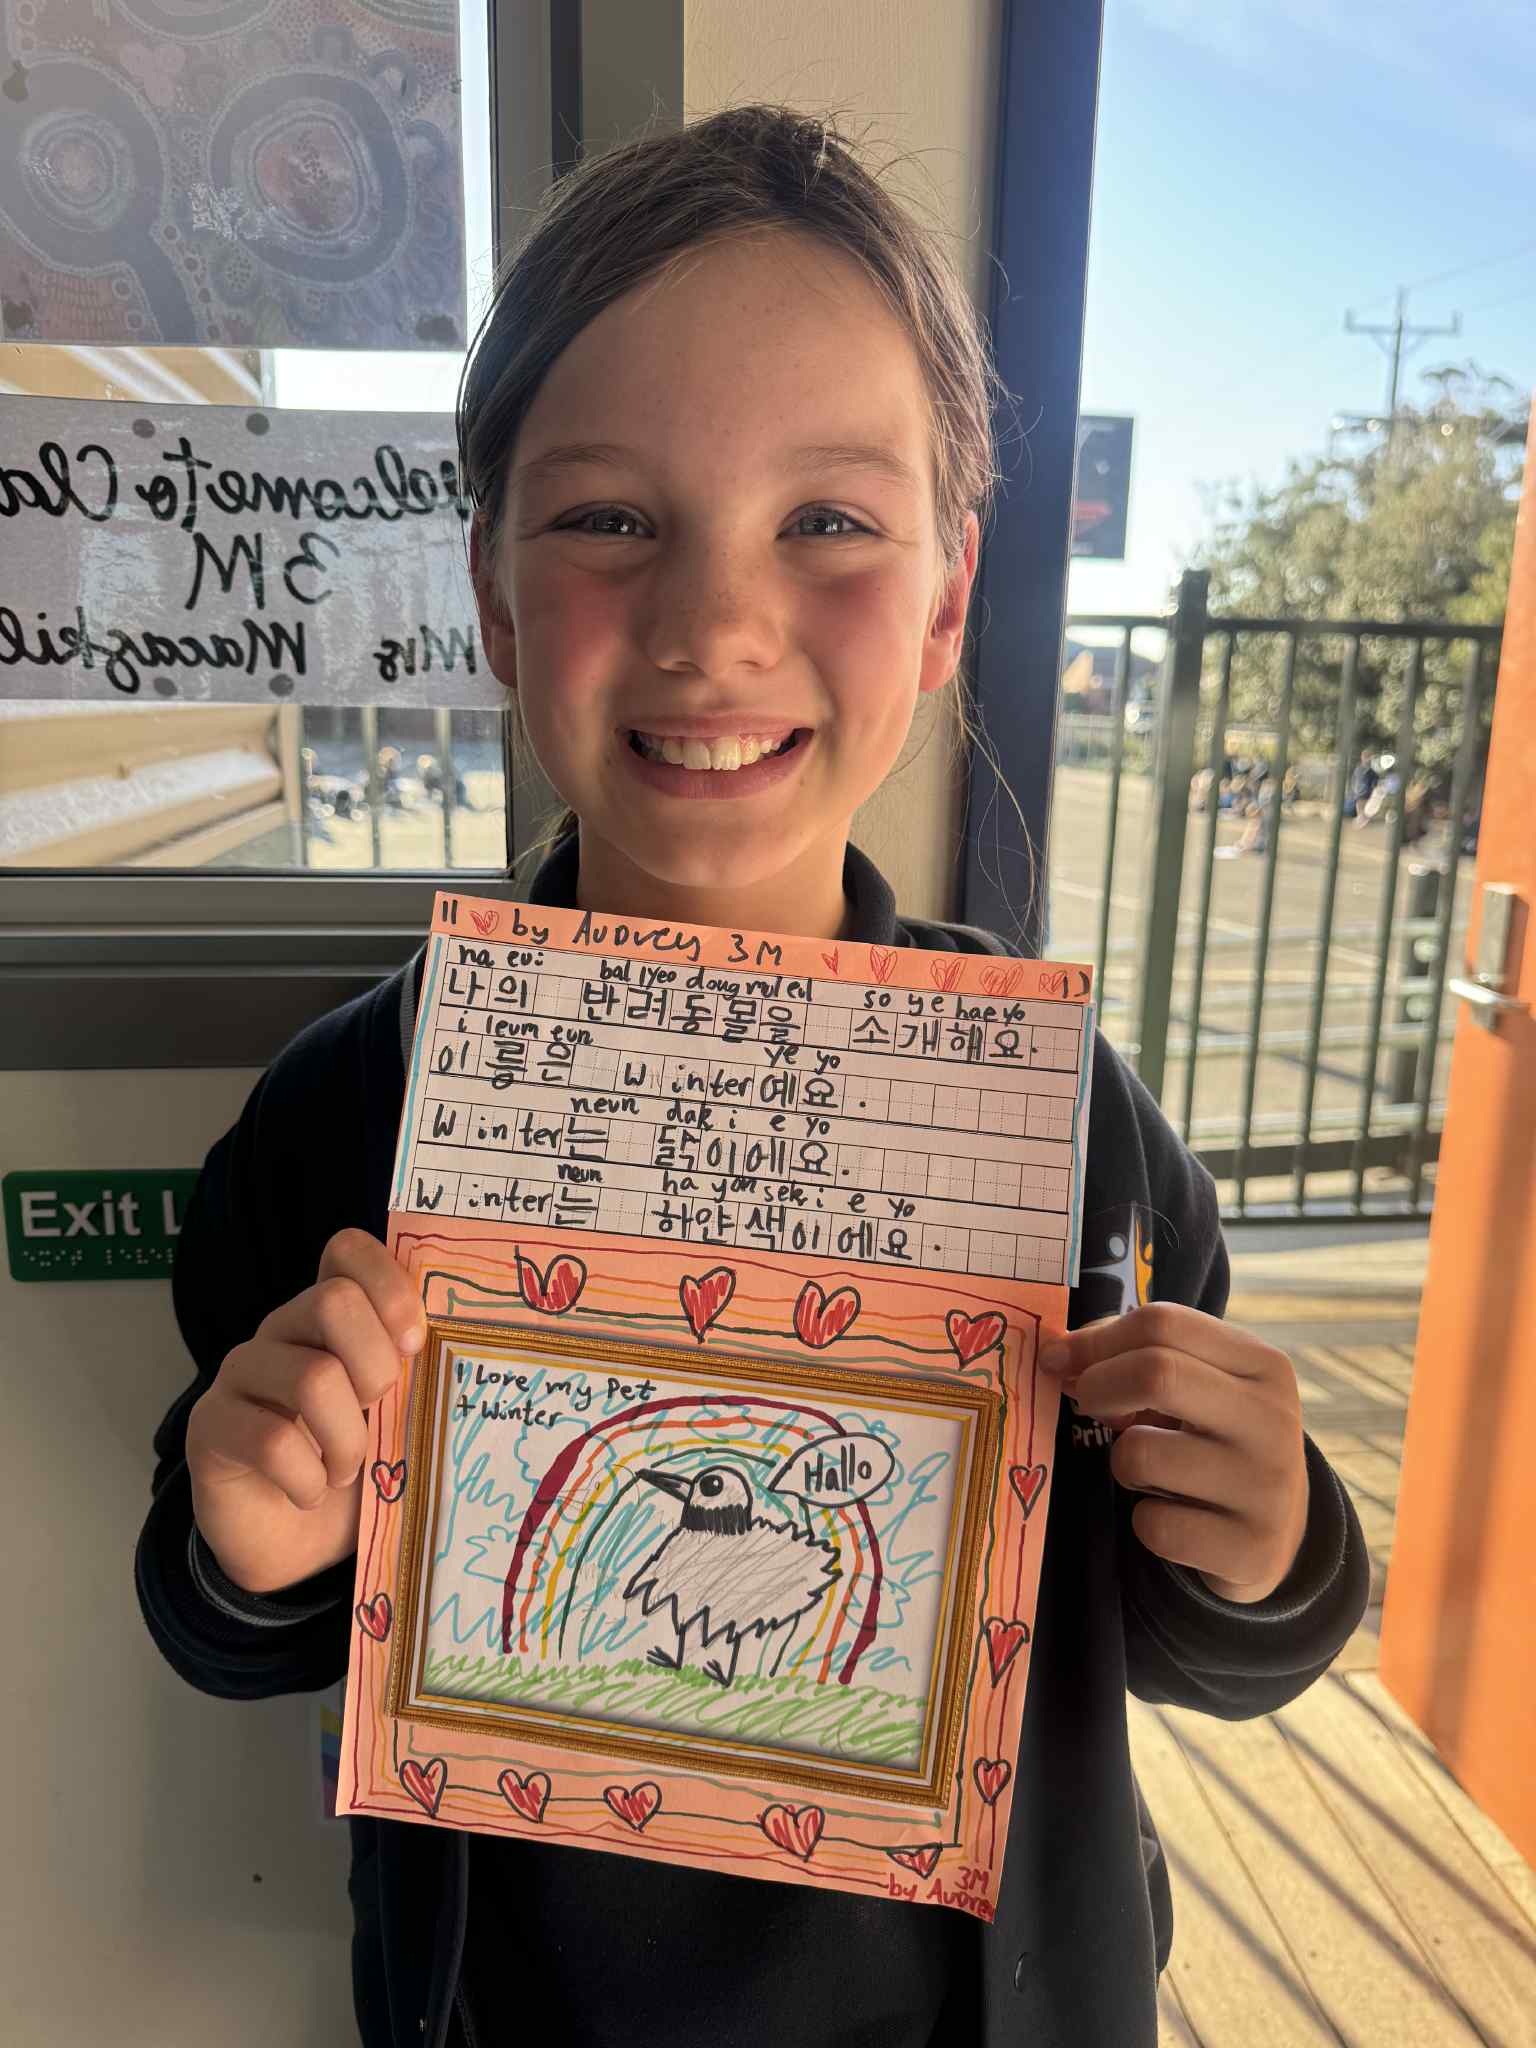 Welcome to Cla
3M
Mrs Macaskil
by AUDREY 3M
na eui bal lyeo dong mul eul so ye hae yo
나의 반려동물을 소개해요.
i leum eun ye yo
이름은 Winter예요.
neun dak i e yo
Winter는 닭이에요.
neun ha yan sek i e yo
Winter는 하얀색이에요.
Exit
I Love my Pet
+ Winter
Hallo
Pri
3M
by Audrey